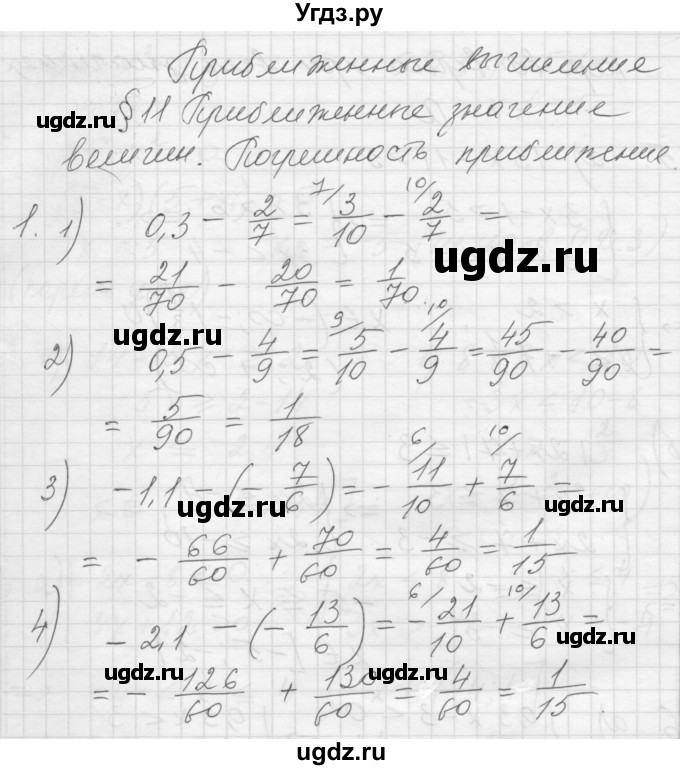 Угдз.ру
Приближенные вычисление
ugdz.ru § 11 Приближенные значение
величин. Погрешность приближение.
1. 1) 0,3 - 2/7 = 7/ 3/10 - 10/ 2/7 =
ugdz.ru
= 21/70 - 20/70 = 1/70.
ugdz.ru
2) 0,5 - 4/9 = 9/ 5/10 - 10/ 4/9 = 45/90 - 40/90 =
= 5/90 = 1/18
3) -1,1 - (- 7/6) = - 6/ 11/10 + 10/ 7/6 =
ugdz.ru ugdz.ru
= - 66/60 + 70/60 = 4/60 = 1/15
4) -2,1 - (- 13/6) = 6/ - 21/10 + 10/ 13/6 =
ugdz.ru ugdz.ru
= - 126/60 + 130/60 = 4/60 = 1/15.
ugdz.ru